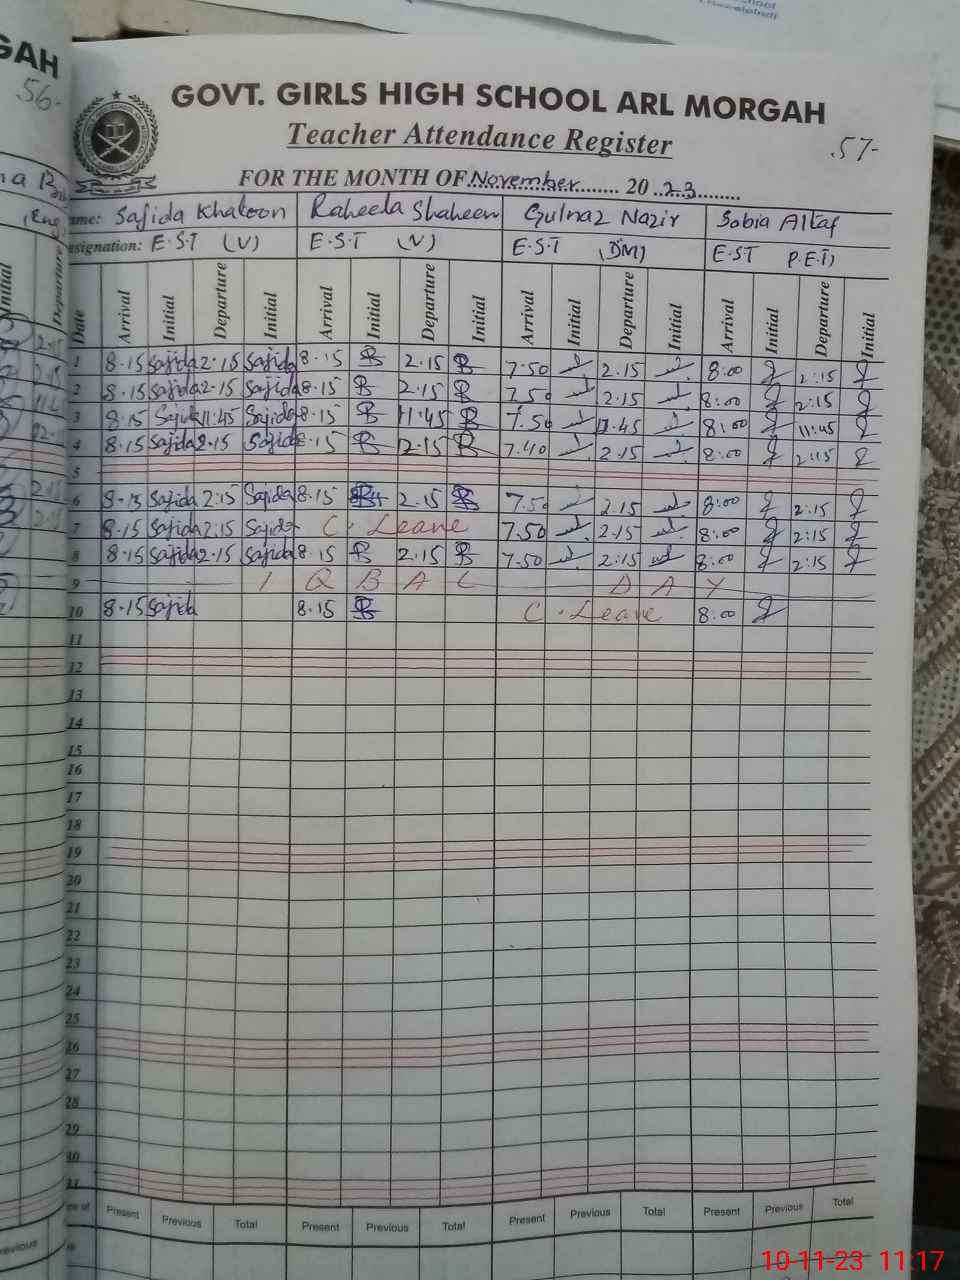 GAH
56-
chool
Rawalpindi
GOVT. GIRLS HIGH SCHOOL ARL MORGAH
Teacher Attendance Register
.57-
FOR THE MONTH OF November 20 23
ame: Sajida Khatoon Raheela Shaheen Gulnaz Nazir Sobia Altaf
esignation: E.S.T (V) E.S.T (V) E.S.T (DM) E.S.T P.E.T)
Date Arrival Initial Departure Initial Arrival Initial Departure Initial Arrival Initial Departure Initial Arrival Initial Departure Initial
1 8.15 Sajida 2.15 Sajida 8.15 2.15 7.50 2.15 8:00 2:15
2 8.15 Sajida 2.15 Sajida 8.15 2.15 7.50 2.15 8:00 2:15
3 8.15 Sajida 11:45 Sajida 8.15 11:45 7.50 11.45 8:00 11:45
4 8.15 Sajida 2.15 Sajida 8.15 2.15 7.40 2.15 8:00 2:15
5
6 8.15 Sajida 2:15 Sajida 8.15 2.15 7.50 2.15 8:00 2:15
7 8.15 Sajida 2:15 Sajida C. Leave 7.50 2.15 8:00 2:15
8 8.15 Sajida 2.15 Sajida 8.15 2.15 7.50 2:15 8:00 2:15
9 I Q B A L D A Y
10 8.15 Sajida 8.15 C. Leave 8.00
11
12
13
14
15
16
17
18
19
20
21
22
23
24
25
26
27
28
29
30
31
Present Previous Total Present Previous Total Present Previous Total Present Previous Total
10-11-23 11:17